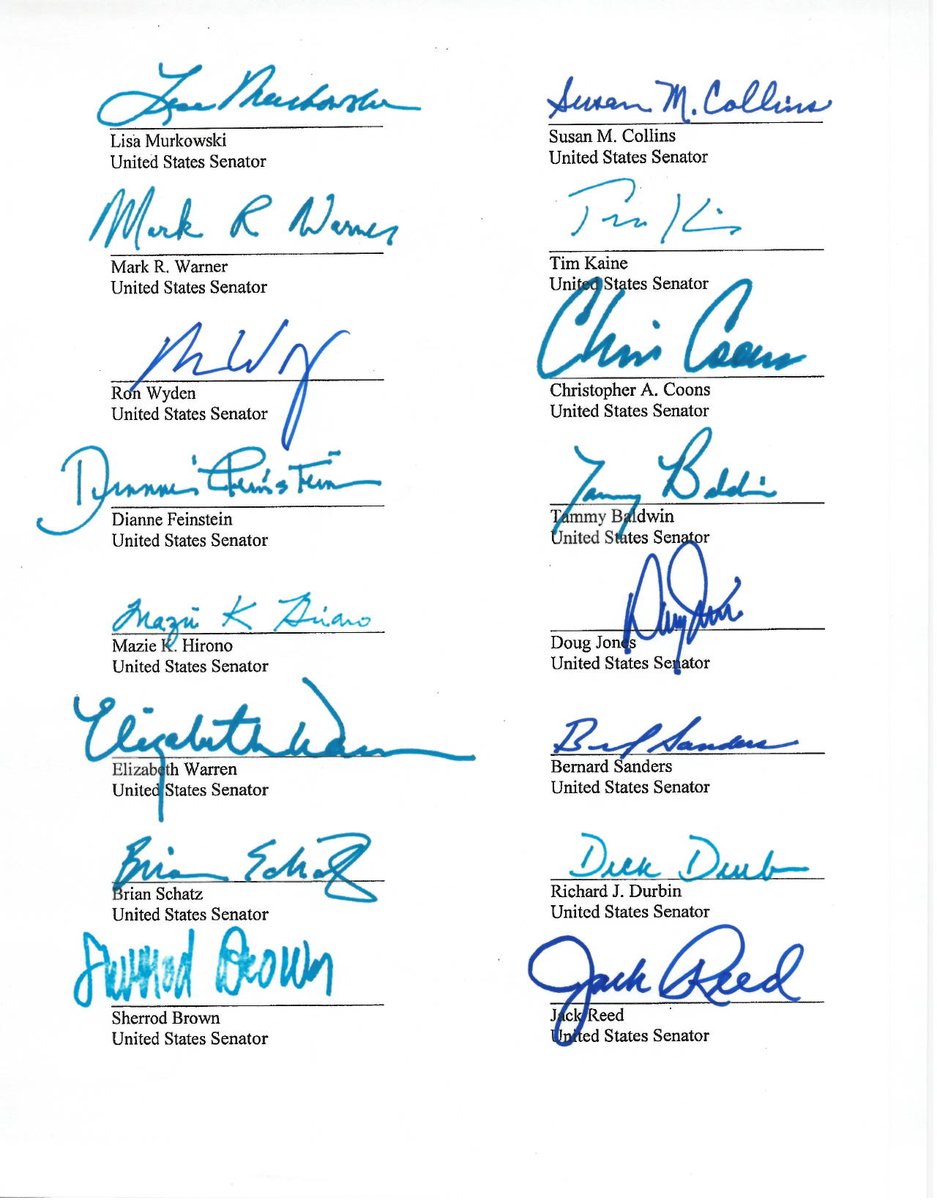 Lisa Murkowski
Lisa Murkowski
United States Senator
Susan M. Collins
Susan M. Collins
United States Senator
Mark R Warner
Mark R. Warner
United States Senator
Tim Kaine
Tim Kaine
United States Senator
Ron Wyden
United States Senator
Chris Coons
Christopher A. Coons
United States Senator
Dianne Feinstein
Dianne Feinstein
United States Senator
Tammy Baldwin
Tammy Baldwin
United States Senator
Mazie K Hirono
Mazie K. Hirono
United States Senator
Doug Jones
Doug Jones
United States Senator
Elizabeth Warren
Elizabeth Warren
United States Senator
Sanders
Bernard Sanders
United States Senator
Brian Schatz
Brian Schatz
United States Senator
Dick Durbin
Richard J. Durbin
United States Senator
Sherrod Brown
Sherrod Brown
United States Senator
Jack Reed
Jack Reed
United States Senator